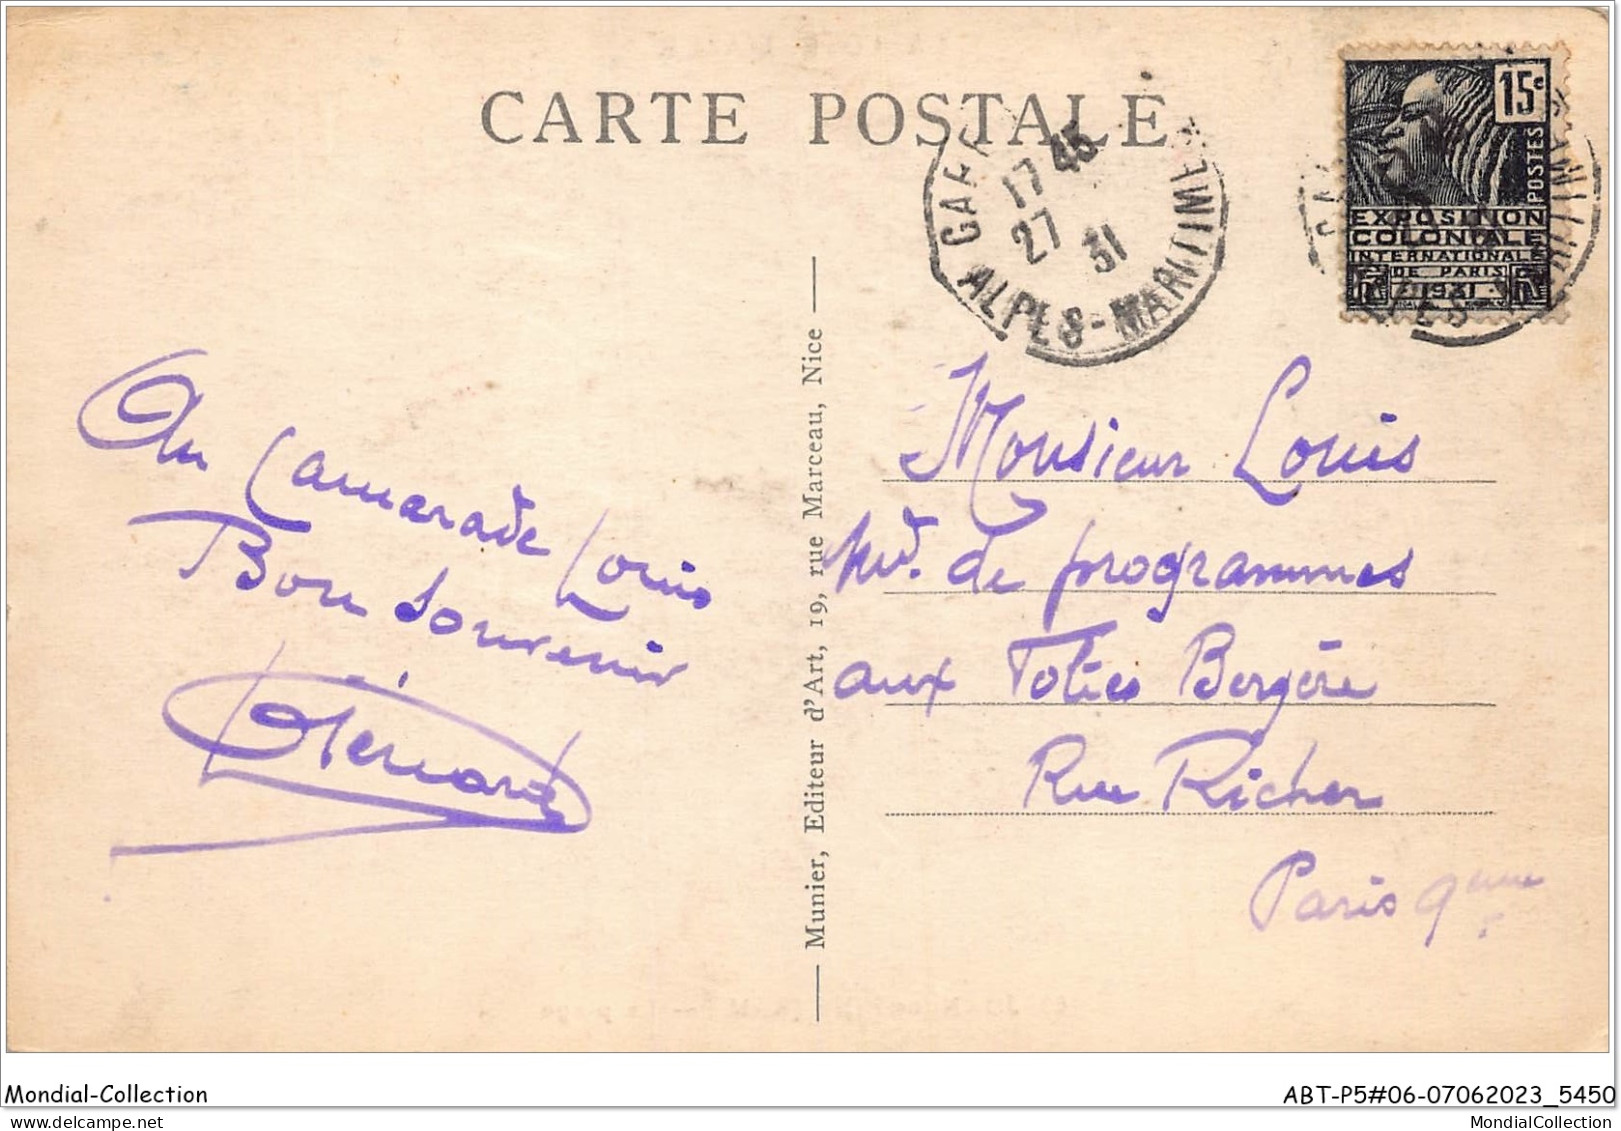 CARTE POSTALE
17 45
27
31
ALPES-MARITIMES
15c
POSTES
EXPOSITION
COLONIALE
INTERNATIONALE
DE PARIS
1931
Au Camarade Louis
Bon Souvenir
Munier, Editeur d'Art, 19, rue Marceau, Nice
Monsieur Louis
de programmes
aux Folies Bergère
Rue Richer
Paris 9eme
Mondial-Collection
ABT-P5#06-07062023_5450
MondialCollection